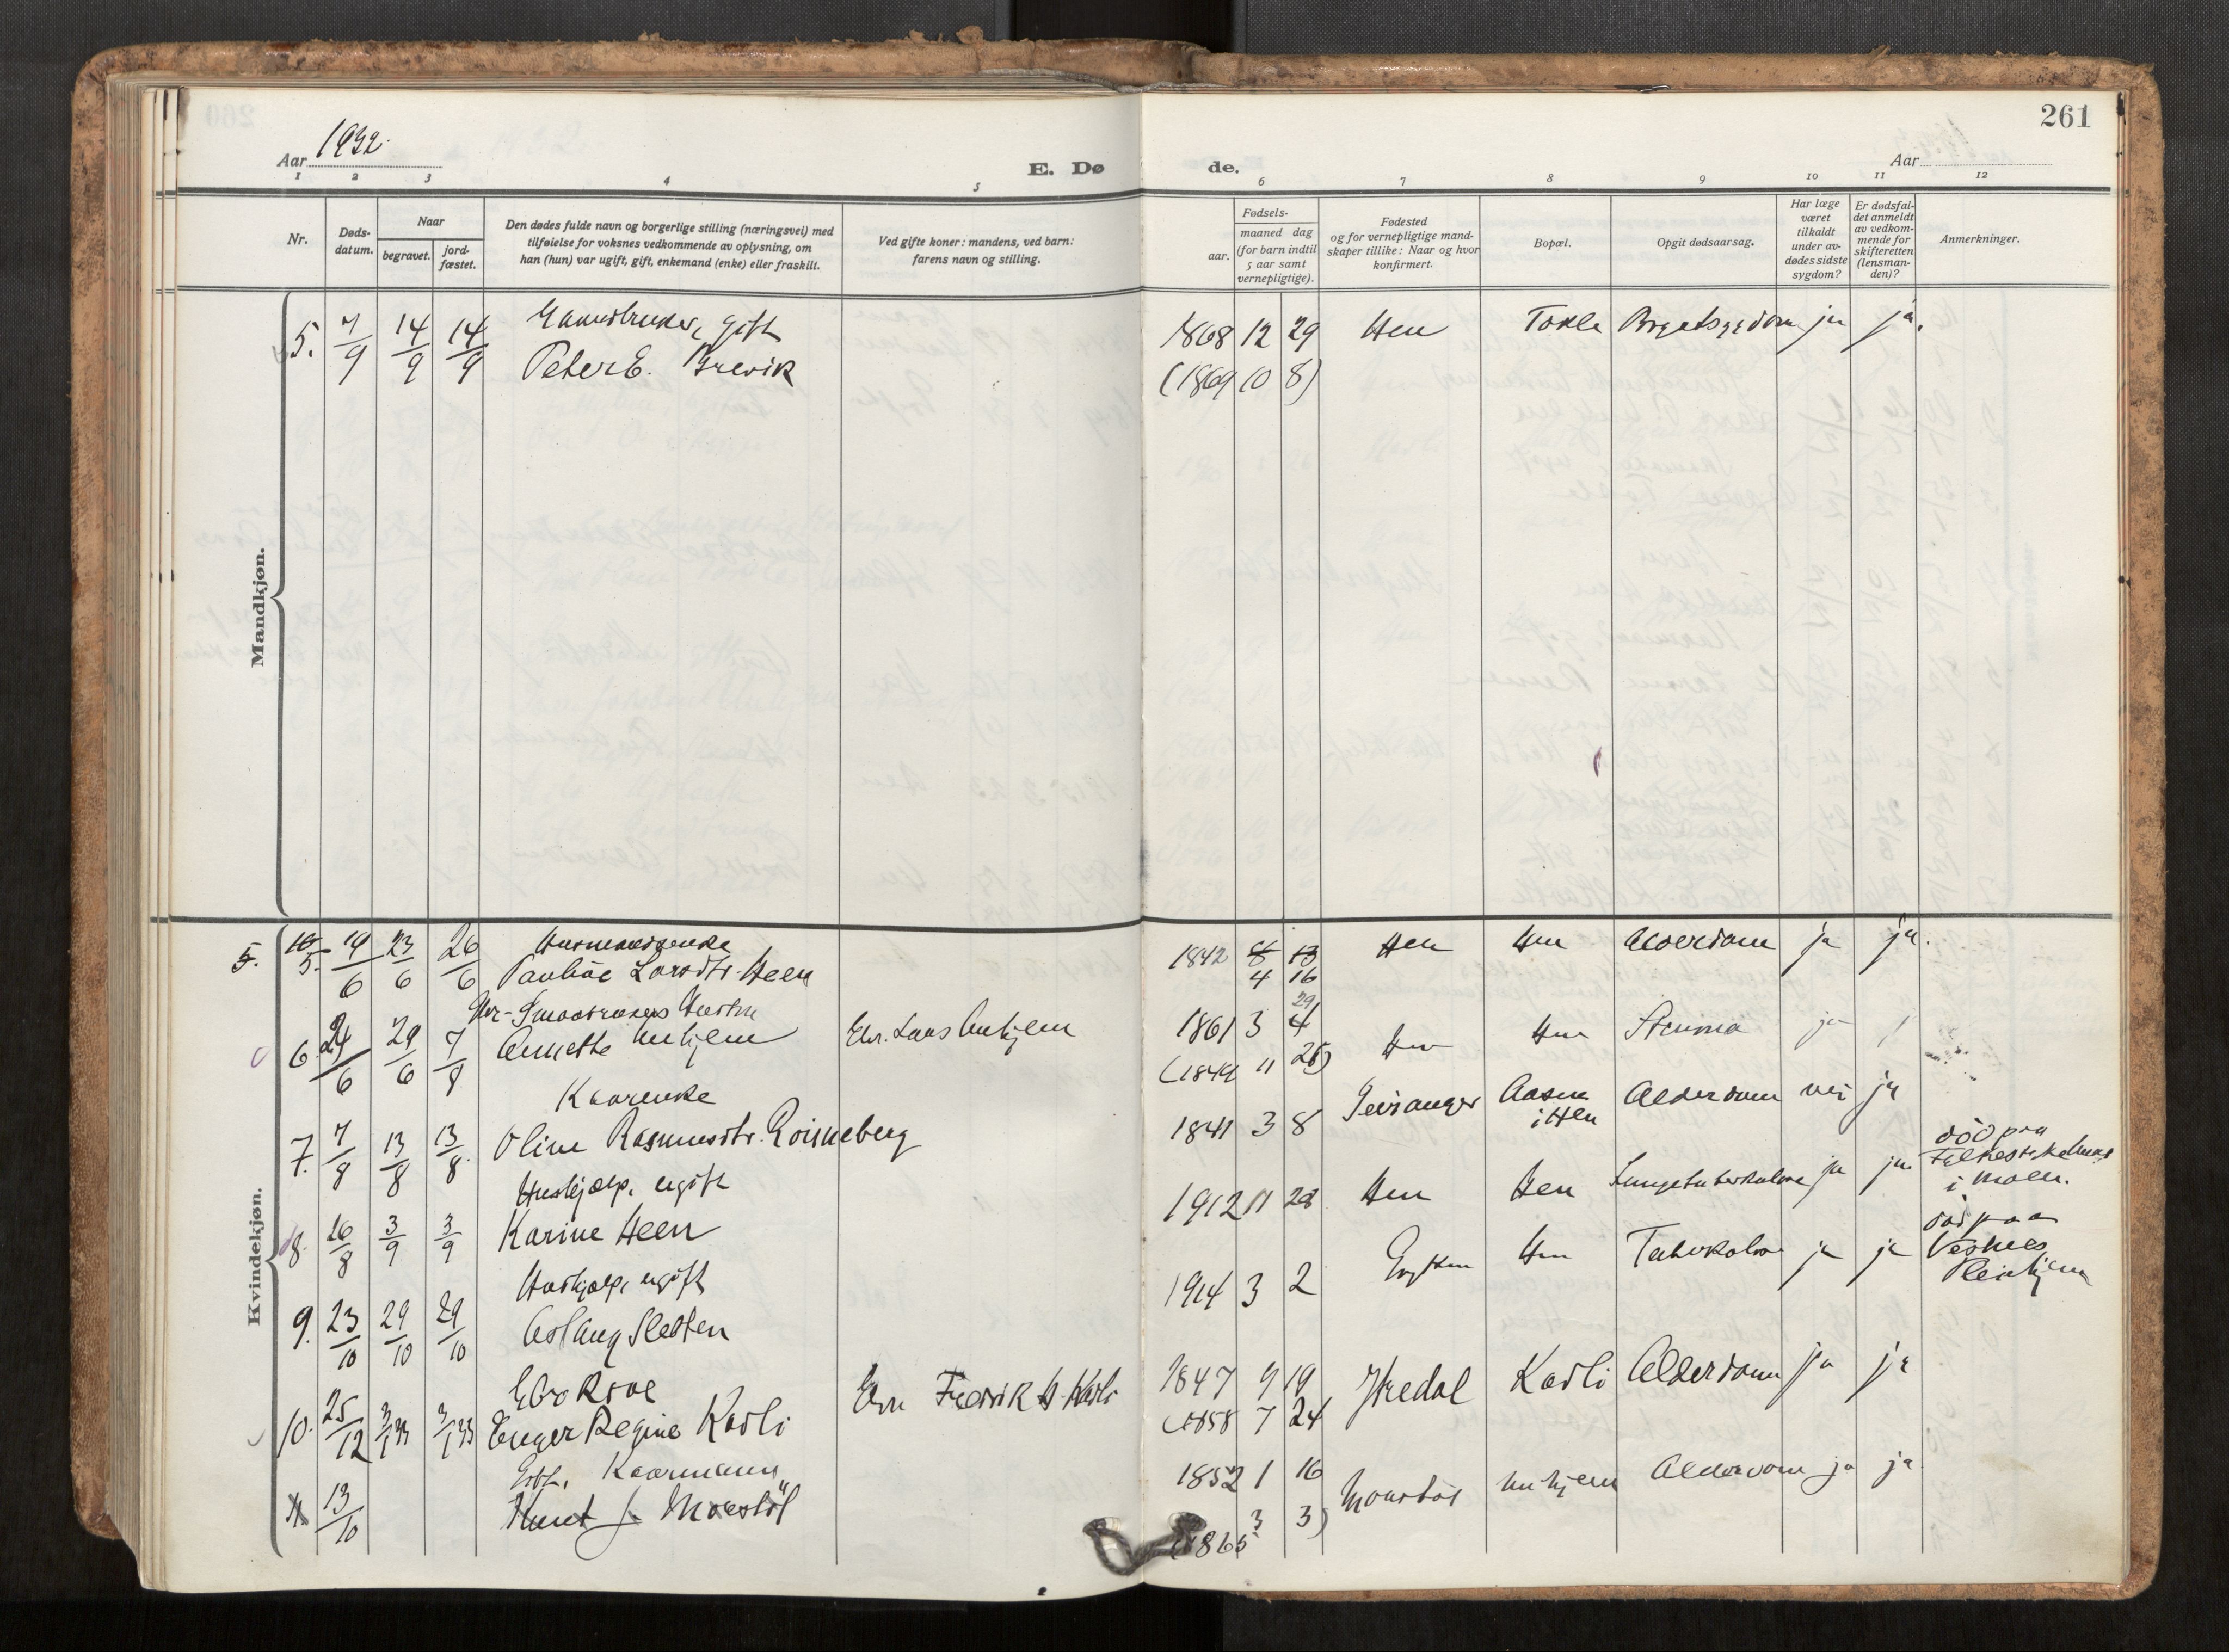 261
Aar 1932.
E. Dø de.
Aar
1 2 3 4 5 6 7 8 9 10 11 12
Nr.
Døds-
datum.
Naar
begravet.
jord-
fæstet.
Den dødes fulde navn og borgerlige stilling (næringsvei) med
tilføielse for voksnes vedkommende av oplysning, om
han (hun) var ugift, gift, enkemand (enke) eller fraskilt.
Ved gifte koner: mandens, ved barn:
farens navn og stilling.
Fødsels-
aar.
maaned dag
(for barn indtil
5 aar samt
vernepligtige).
Fødested
og for vernepligtige mand-
skaper tillike: Naar og hvor
konfirmert.
Bopæl.
Opgit dødsaarsag.
Har læge
været
tilkaldt
under av-
dødes sidste
sygdom?
Er dødsfal-
det anmeldt
av vedkom-
mende for
skifteretten
(lensman-
den)?
Anmerkninger.
Mandkjøn.
Gaardbruker, gift 1868 12 29 Hen Tokle ja ja.
5. 7/9 14/9 14/9 Peter E. Brevik (1869 10 8)
Kvindekjøn.
5. 10 5. 19/6 23/6 26/6 1842 8 13 Hen Hen Alderdom ja ja.
Pauline Larsdtr. Heen 4 16
29
6. 24/6 29/6 7/8 Annette Unhjem Lars Unhjem 1861 3 4 Hen Hen Struma ja
(1849 11 25)
Kaarenke
7. 7/8 13/8 13/8. Oline Rasmusdtr. 1841 3 8 Geiranger Aasen Alderdom nei ja
i Hen
Hushjælp, ugift død paa
8. 26/8 3/9 3/9 Karine Heen 1912 11 28 Hen Hen Lungetuberkulose ja ja.
i Molde.
Hushjælp, ugift død paa
9. 23/10 29/10 29/10 Aslaug Sletten 1914 3 2 Hen ja ja Vestnes
Pleiehjem
10. 25/12 3/1 33 3/1 33 Regine Kavli Fredrik Kavli 1847 9 19 Kavli Alderdom ja ja
(1858 7 24
Kaarmann
11 13/10 Knut J. Morstøl 1852 1 16 Unhjem Alderdom ja ja
(1865 3 3)